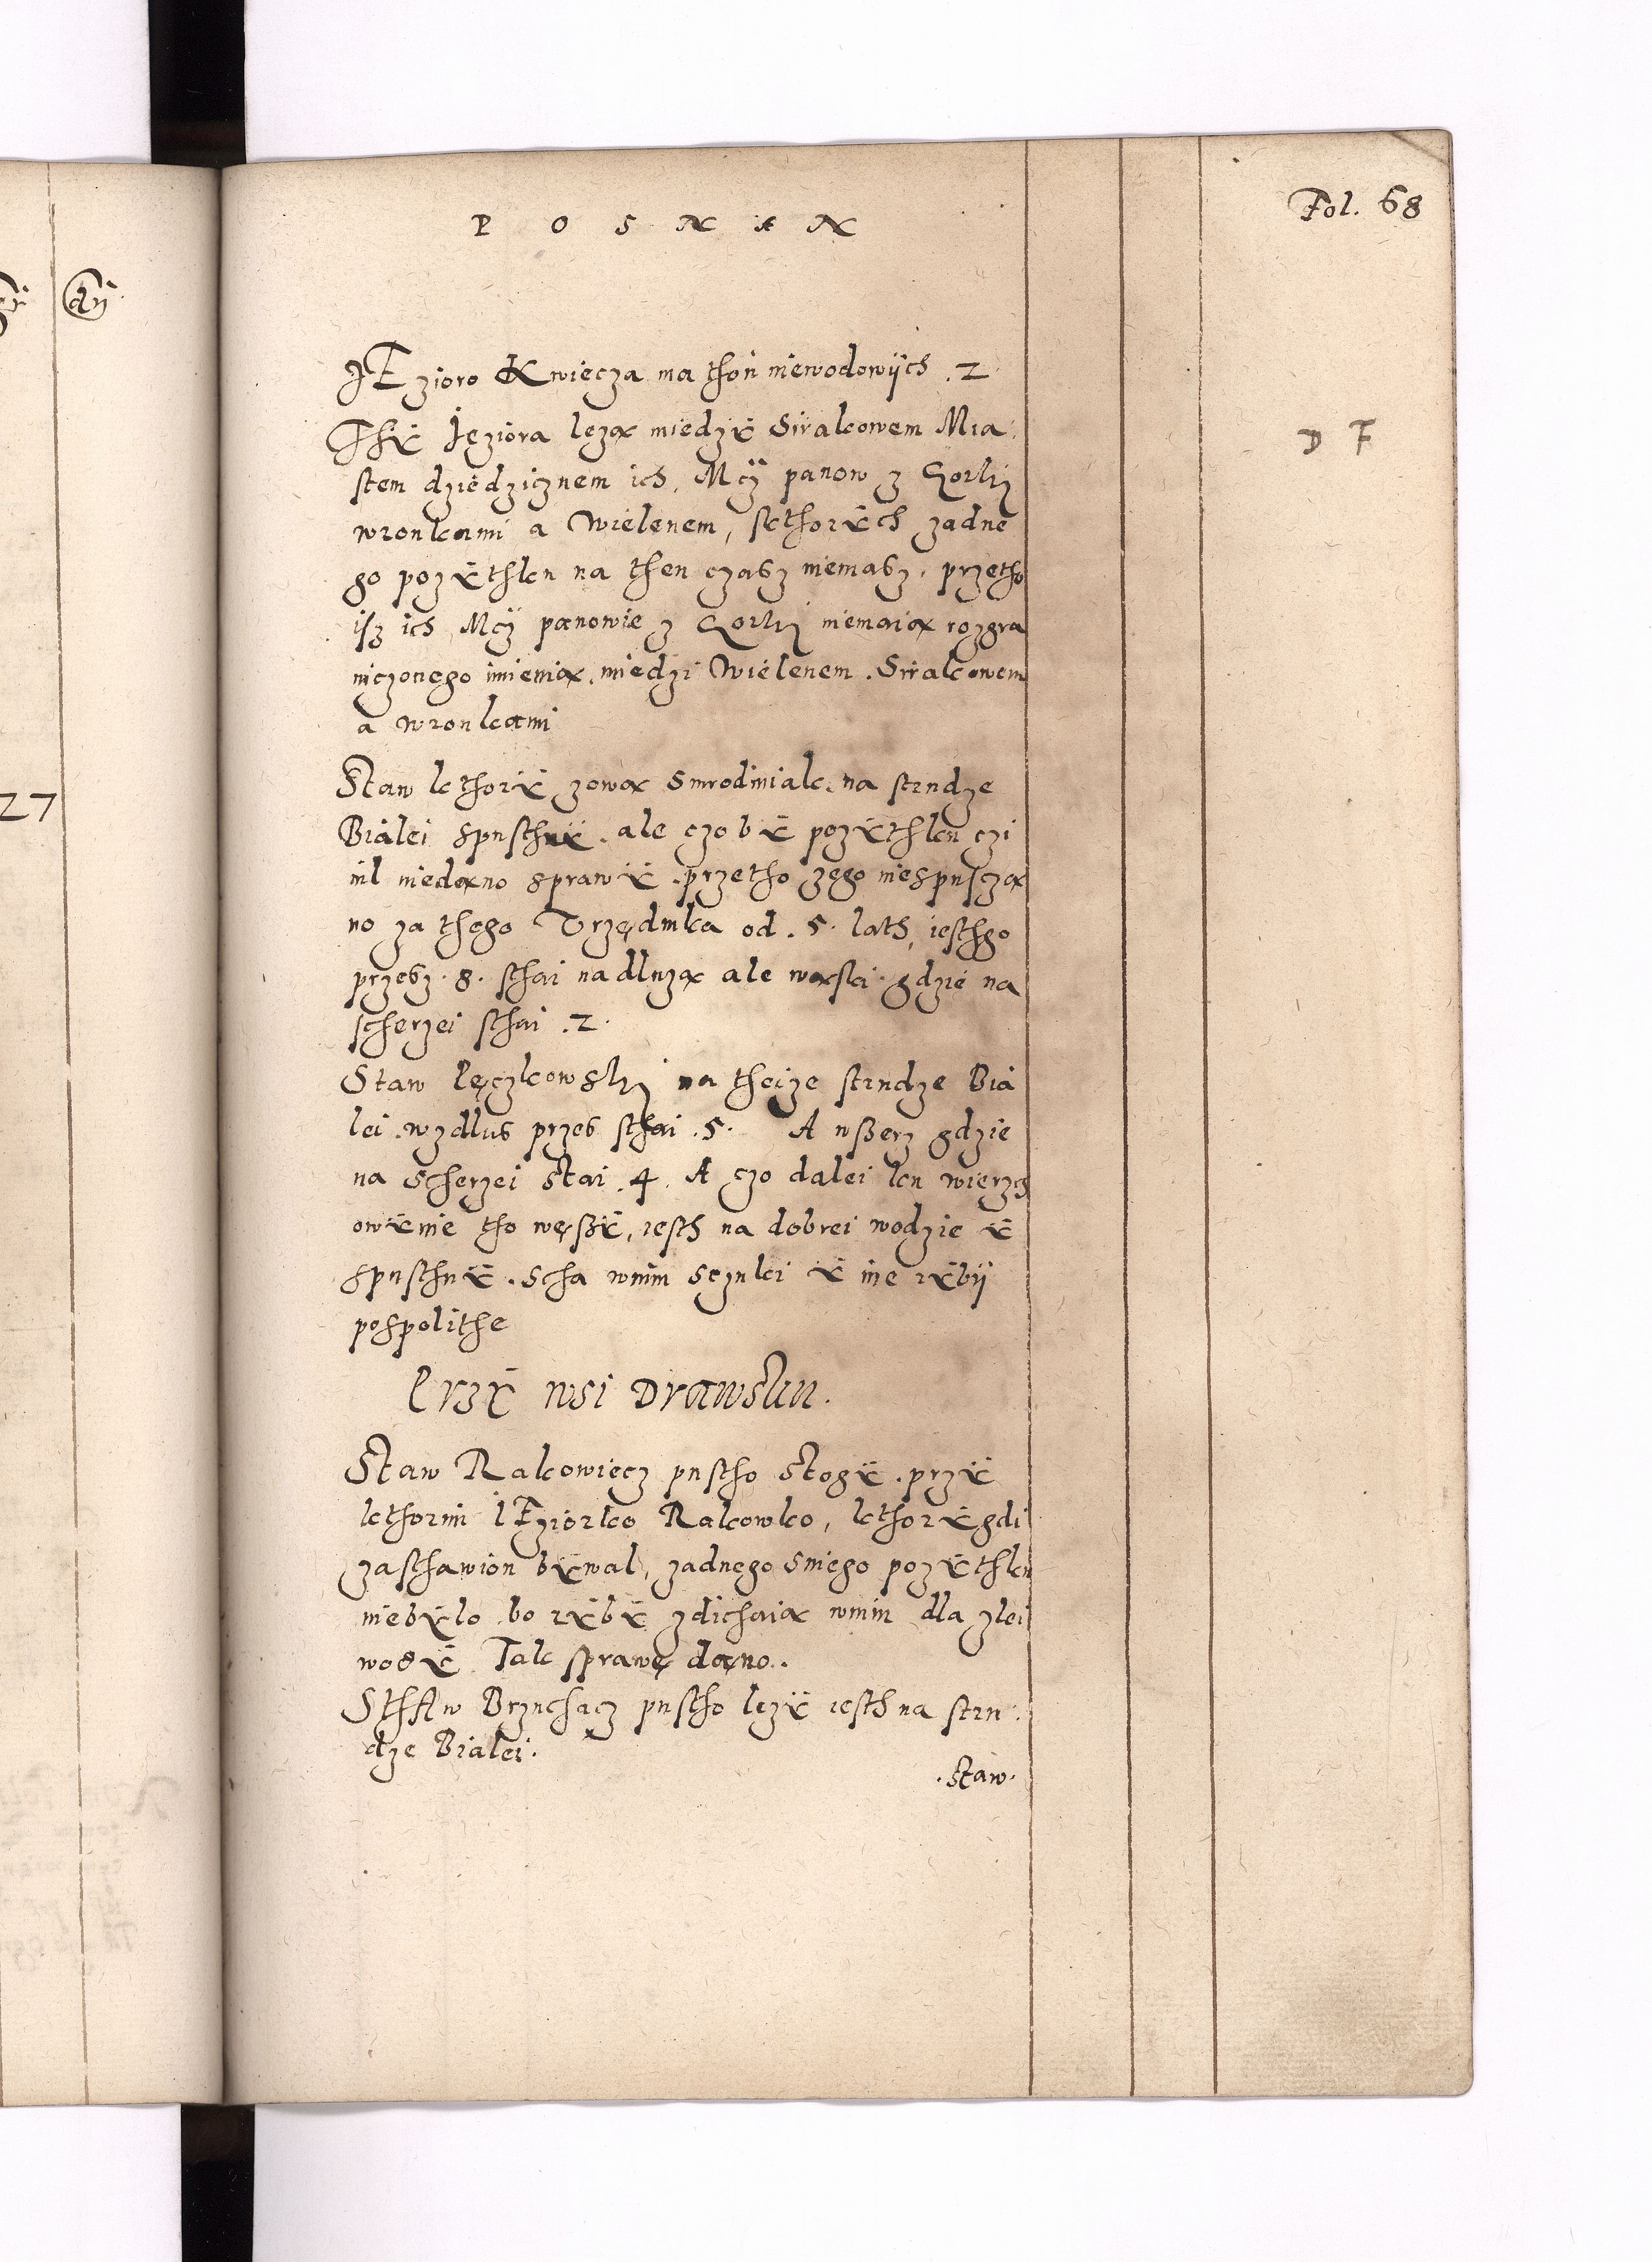 Fol. 68
P O S N A N
JEzioro Kwiecza ma thoń niewodowÿch .2.
Thÿ Jęziora lęzą miedzÿ Sirakowem Mia-
stem dziedzicznem ich Mczÿ panow z Gorkÿ
wronkami a Wielenem, sktorÿch zadne
go pozÿthku na then czasz niemasz, przetho
isz ich Mczÿ panowie z Gorkÿ niemaią rozgra
niczonego imienia, miedzi Wielenem. Sirakowem
a wronkami
D F
Staw kthorÿ zową Smrodiniak, na strudze
Bialei spusthnÿ. ale czobÿ pozÿthku czi
nil niedano sprawÿ. przetho zego niespuscza
no za thego Vrzędnika od .5. lath, iesthgo
przesz .8. sthai nadluzą ale wąski. gdzie na
scherzei sthai .2.
Staw Lęczkowskÿ na theize strudze Bia
lei .wzdlus przes sthai .5. A wszerz gdzie
na scherzei stai .4. A czo dalei ku wierzch
owÿnie tho węszÿ, iesth na dobrei wodzie ÿ
spusthnÿ. Scha wnim sczuki ÿ ine rÿbÿ
pospolithe
Przÿ wsi Drawsku.
Staw Rakowiecz pustho stogÿ. przÿ
kthormi iEziorko Rakowko, kthorÿ gdi
zasthawion bÿwal, zadnego sniego pozÿthku
niebÿlo bo rÿbÿ zdichaią wnim dla zlei
wodÿ. Tak sprawę dano..
SthAw Brzuchacz pustho lezÿ iesth na stru-
dze Bialei.
.Staw.
27